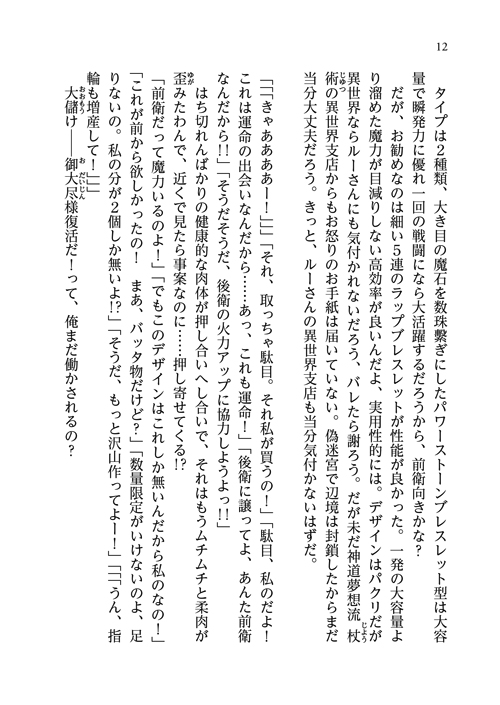 12
タイプは２種類、大き目の魔石を数珠繫ぎにしたパワーストーンブレスレット型は大容
量で瞬発力に優れ一回の戦闘になら大活躍するだろうから、前衛向きかな？
だが、お勧めなのは細い５連のラップブレスレットが性能が良かった。一発の大容量よ
り溜めた魔力が目減りしない高効率が良いんだよ、実用性的には。デザインはパクリだが
異世界ならルーさんにも気付かれないだろう、バレたら謝ろう。だが未だ神道夢想流杖
じょう
術の異世界支店からもお怒りのお手紙は届いていない。偽迷宮で辺境は封鎖したからまだ
じゅつ
当分大丈夫だろう。きっと、ルーさんの異世界支店も当分気付かないはずだ。
「「「きゃあああああー！」」」「それ、取っちゃ駄目。それ私が買うの！」「駄目、私のだよ！
これは運命の出会いなんだから……あっ、これも運命！」「後衛に譲ってよ、あんた前衛
なんだから！！」「そうだそうだ、後衛の火力アップに協力しようよっ！！」
はち切れんばかりの健康的な肉体が押し合いへし合いで、それはもうムチムチと柔肉が
歪みたわんで、近くで見たら事案なのに……押し寄せてくる！？
ゆが
「前衛だって魔力いるのよ！」「でもこのデザインはこれしか無いんだから私のなの！」
「これが前から欲しかったの！　まあ、バッタ物だけど？」「数量限定がいけないのよ、足
りないの。私の分が２個しか無いよ！？」「そうだ、もっと沢山作ってよー！」「「「うん、指
輪も増産して！」」」
大儲け――御大尽様復活だ！って、俺まだ働かされるの？
おおもう
お だいじん